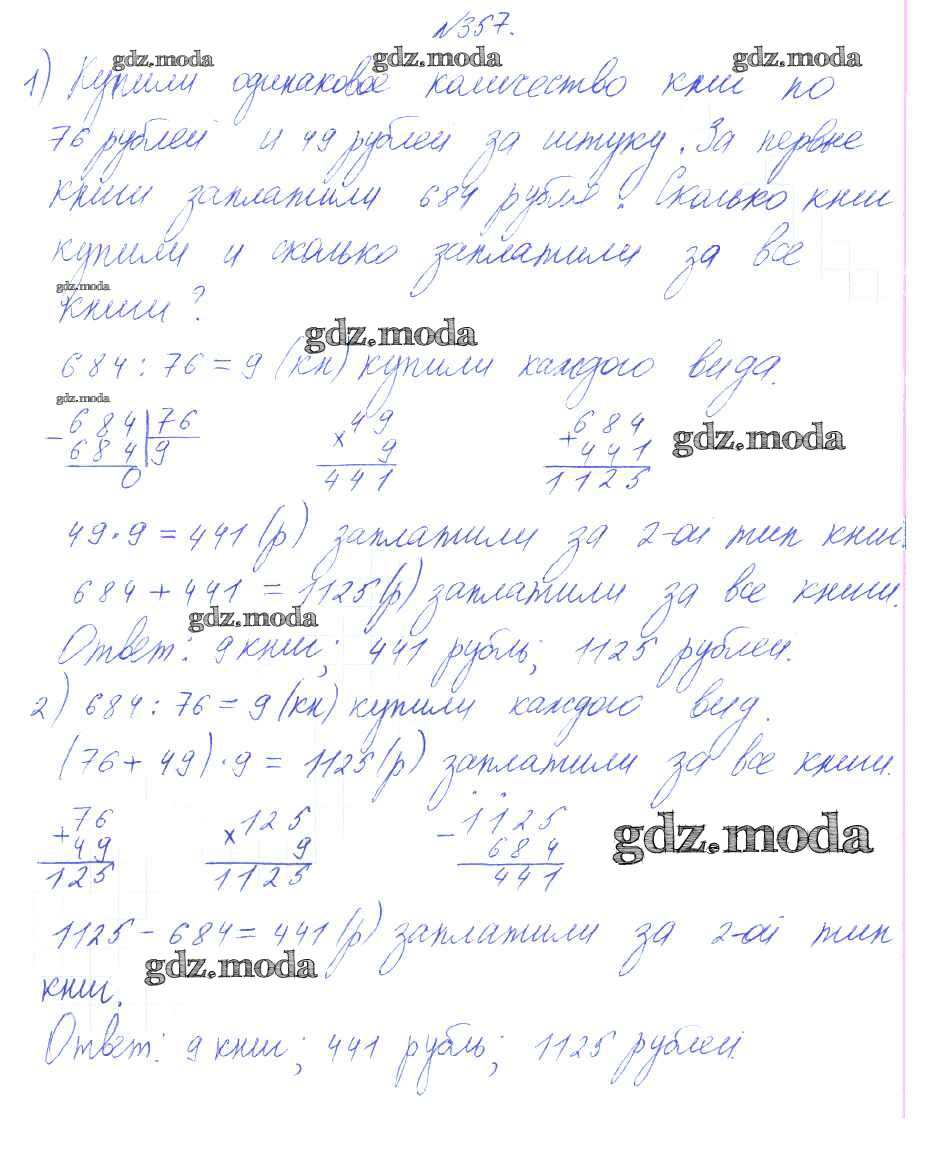 №357.
1) Купили одинаковое количество книг по
76 рублей и 49 рублей за штуку. За первые
книги заплатили 684 рубля. Сколько книг
купили и сколько заплатили за все
книги?
684 : 76 = 9 (кн) купили каждого вида.
- 684 | 76
684 | 9
0
× 49
9
441
+ 684
441
1125
49 · 9 = 441 (р) заплатили за 2-ой тип книг.
684 + 441 = 1125 (р) заплатили за все книги.
Ответ: 9 книг; 441 рубль; 1125 рублей.
2) 684 : 76 = 9 (кн) купили каждого вид.
(76 + 49) · 9 = 1125 (р) заплатили за все книги.
+ 76
49
125
× 125
9
1125
- 1125
684
441
1125 - 684 = 441 (р) заплатили за 2-ой тип
книг.
Ответ: 9 книг; 441 рубль; 1125 рублей
gdz.moda
gdz.moda
gdz.moda
gdz.moda
gdz.moda
gdz.moda
gdz.moda
gdz.moda
gdz.moda
gdz.moda